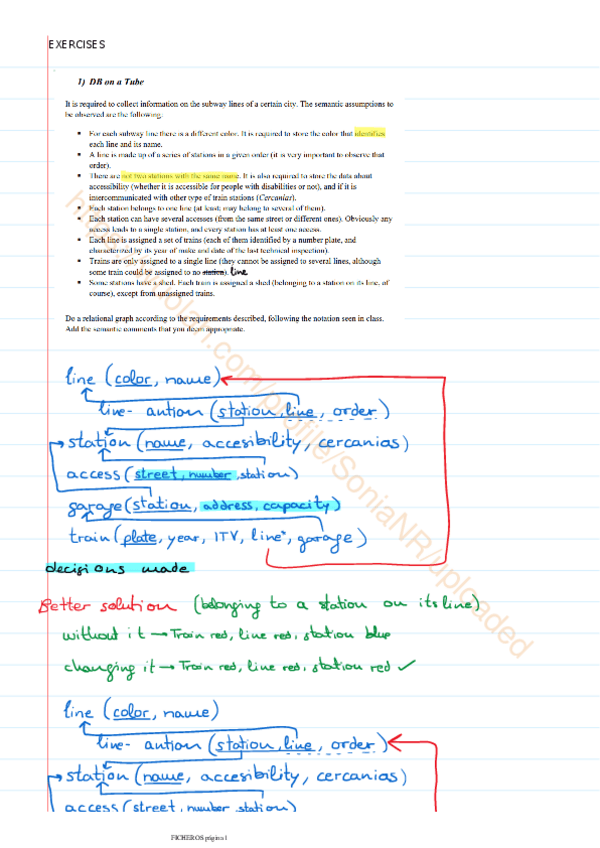 EXERCISES
1) DB on a Tube
It is required to collect information on the subway lines of a certain city. The semantic assumptions to
be observed are the following:
▪ For each subway line there is a different color. It is required to store the color that identifies
each line and its name.
▪ A line is made up of a series of stations in a given order (it is very important to observe that
order).
▪ There are not two stations with the same name. It is also required to store the data about
accessibility (whether it is accessible for people with disabilities or not), and if it is
intercommunicated with other type of train stations (Cercanías).
▪ Each station belongs to one line (at least; may belong to several of them).
▪ Each station can have several accesses (from the same street or different ones). Obviously any
access leads to a single station, and every station has at least one access.
▪ Each line is assigned a set of trains (each of them identified by a number plate, and
characterized by its year of make and date of the last technical inspection).
▪ Trains are only assigned to a single line (they cannot be assigned to several lines, although
some train could be assigned to no station). line
▪ Some stations have a shed. Each train is assigned a shed (belonging to a station on its line, of
course), except from unassigned trains.
Do a relational graph according to the requirements described, following the notation seen in class.
Add the semantic comments that you deem appropriate.
line (color, name)
line- antion (station, line, order)
station (name, accesibility, cercanias)
access (street, number, station)
garage (station, address, capacity)
train (plate, year, ITV, line*, garage)
decisions made
Better solution (belonging to a station on its line)
without it → Train red, line red, station blue
changing it → Train red, line red, station red ✓
line (color, name)
line- antion (station, line, order)
station (name, accesibility, cercanias)
access (street, number, station)
FICHEROS página 1